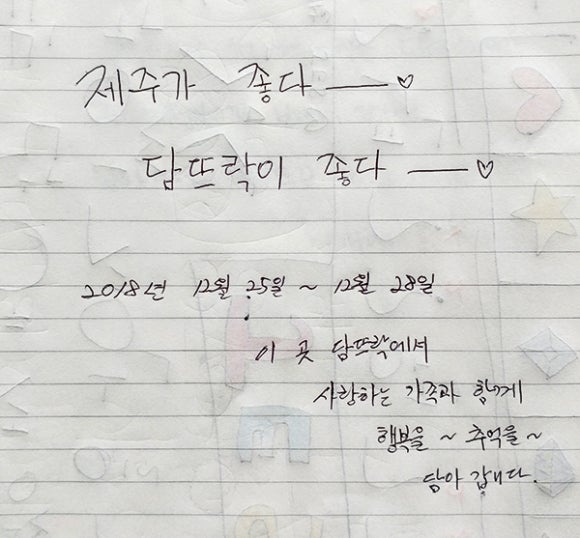 제주가 좋다 ── ♡
담뜨락이 좋다 ── ♡
2018년 12월 25일 ~ 12월 28일
이 곳 담뜨락에서
사랑하는 가족과 함께
행복을 ~ 추억을 ~
담아 갑니다.